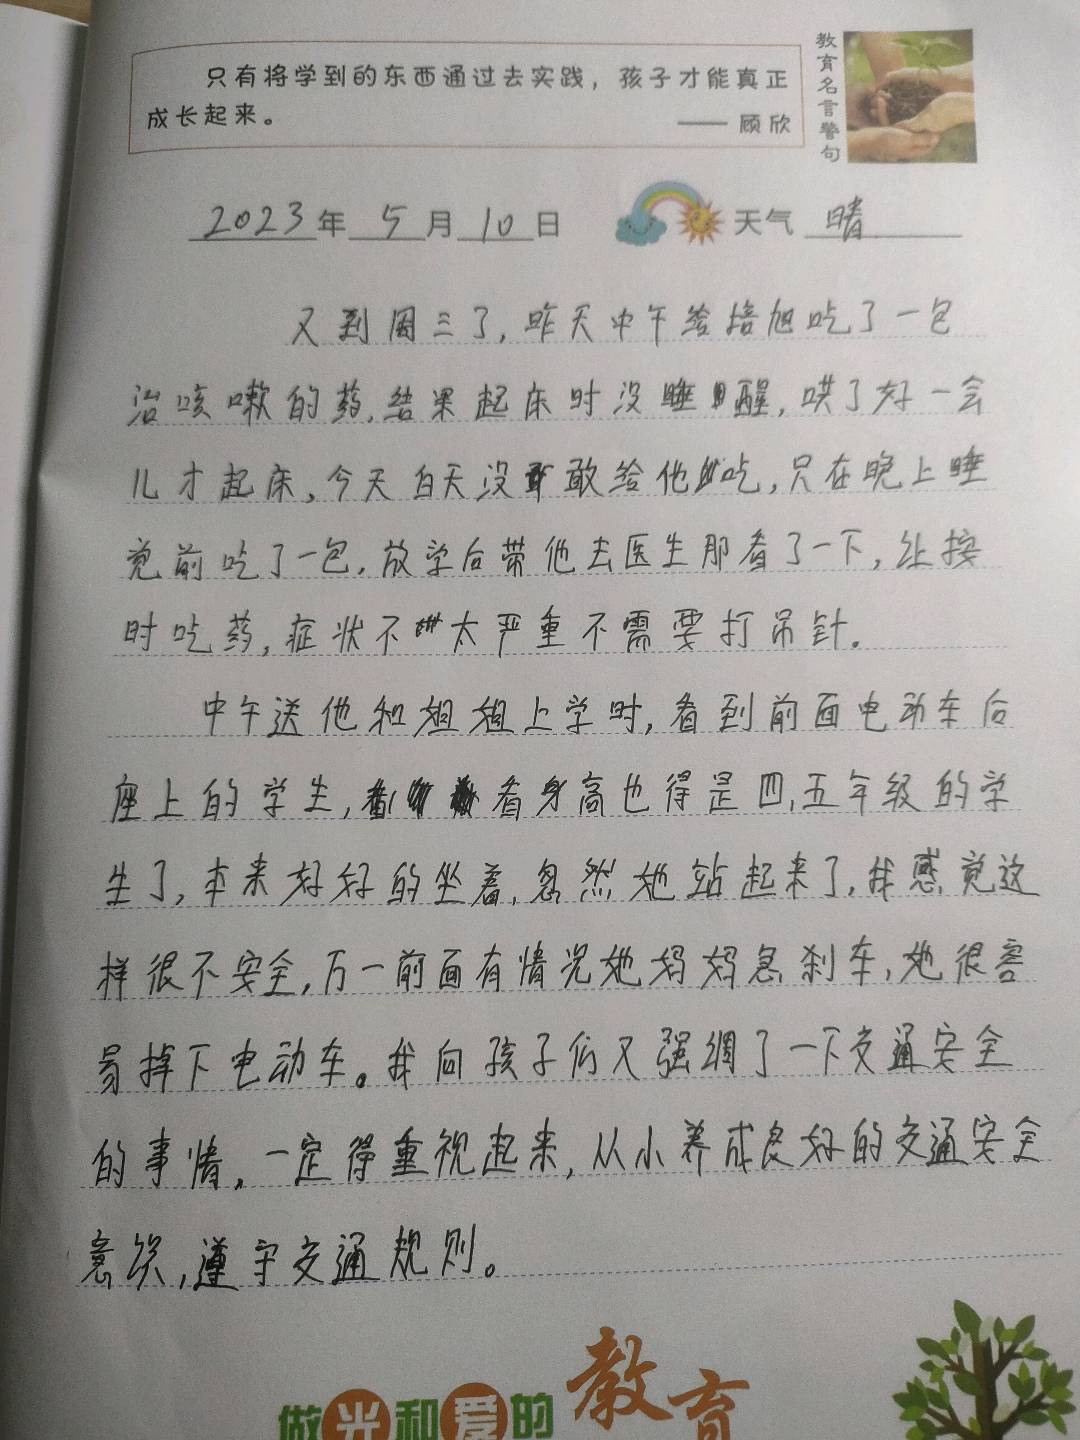 只有将学到的东西通过去实践，孩子才能真正
成长起来。
—— 顾欣
教育名言警句
2023年 5月10日 天气 晴
又到周三了，昨天中午给培旭吃了一包
治咳嗽的药，结果起床时没睡醒，哄了好一会
儿才起床，今天白天没敢给他吃，只在晚上睡
觉前吃了一包，放学后带他去医生那看了一下，让按
时吃药，症状不太严重不需要打吊针。
中午送他和姐姐上学时，看到前面电动车后
座上的学生，看身高也得是四，五年级的学
生了，本来好好的坐着，忽然她站起来了，我感觉这
样很不安全，万一前面有情况她妈妈急刹车，她很容
易掉下电动车。我向孩子们又强调了一下交通安全
的事情，一定得重视起来，从小养成良好的交通安全
意识，遵守交通规则。
做光和爱的教育